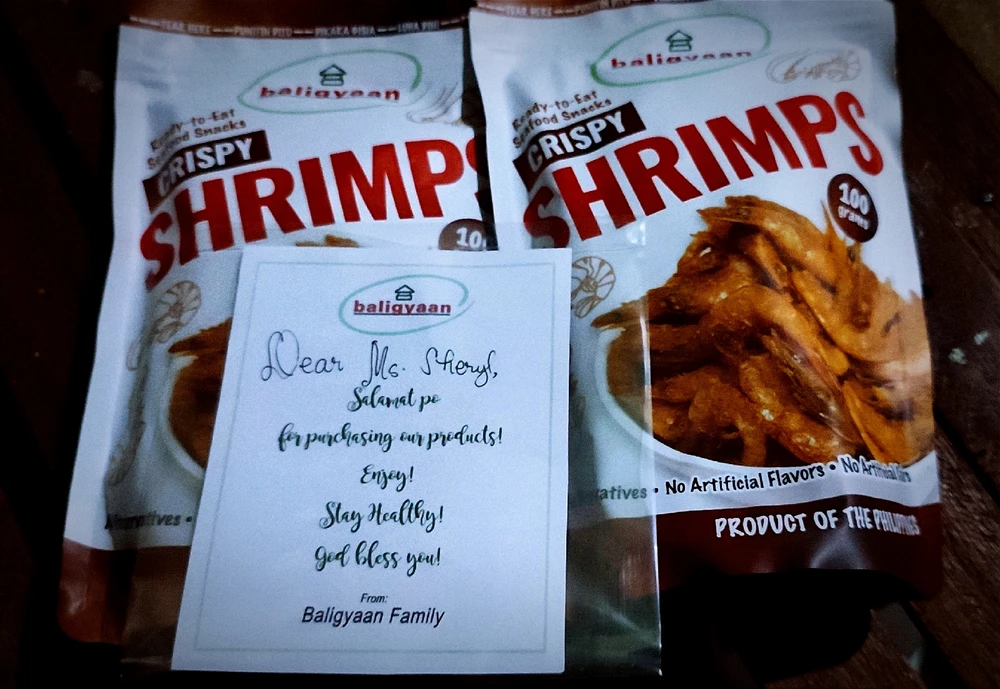 TEAR HERE PUNITIN DITO PIKAKA DISIA
baligyaan
Ready-to-Eat
Seafood Snacks
CRISPY
SHRIMPS
TEAR HERE
baligyaan
Ready-to-Eat
Seafood Snacks
CRISPY
SHRIMPS
100
grams
• No Artificial Flavors • No Artificial
PRODUCT OF THE PHILIPPINES
baligyaan
Dear Ms. Sheryl,
Salamat po
for purchasing our products!
Enjoy!
Stay Healthy!
God bless you!
From:
Baligyaan Family